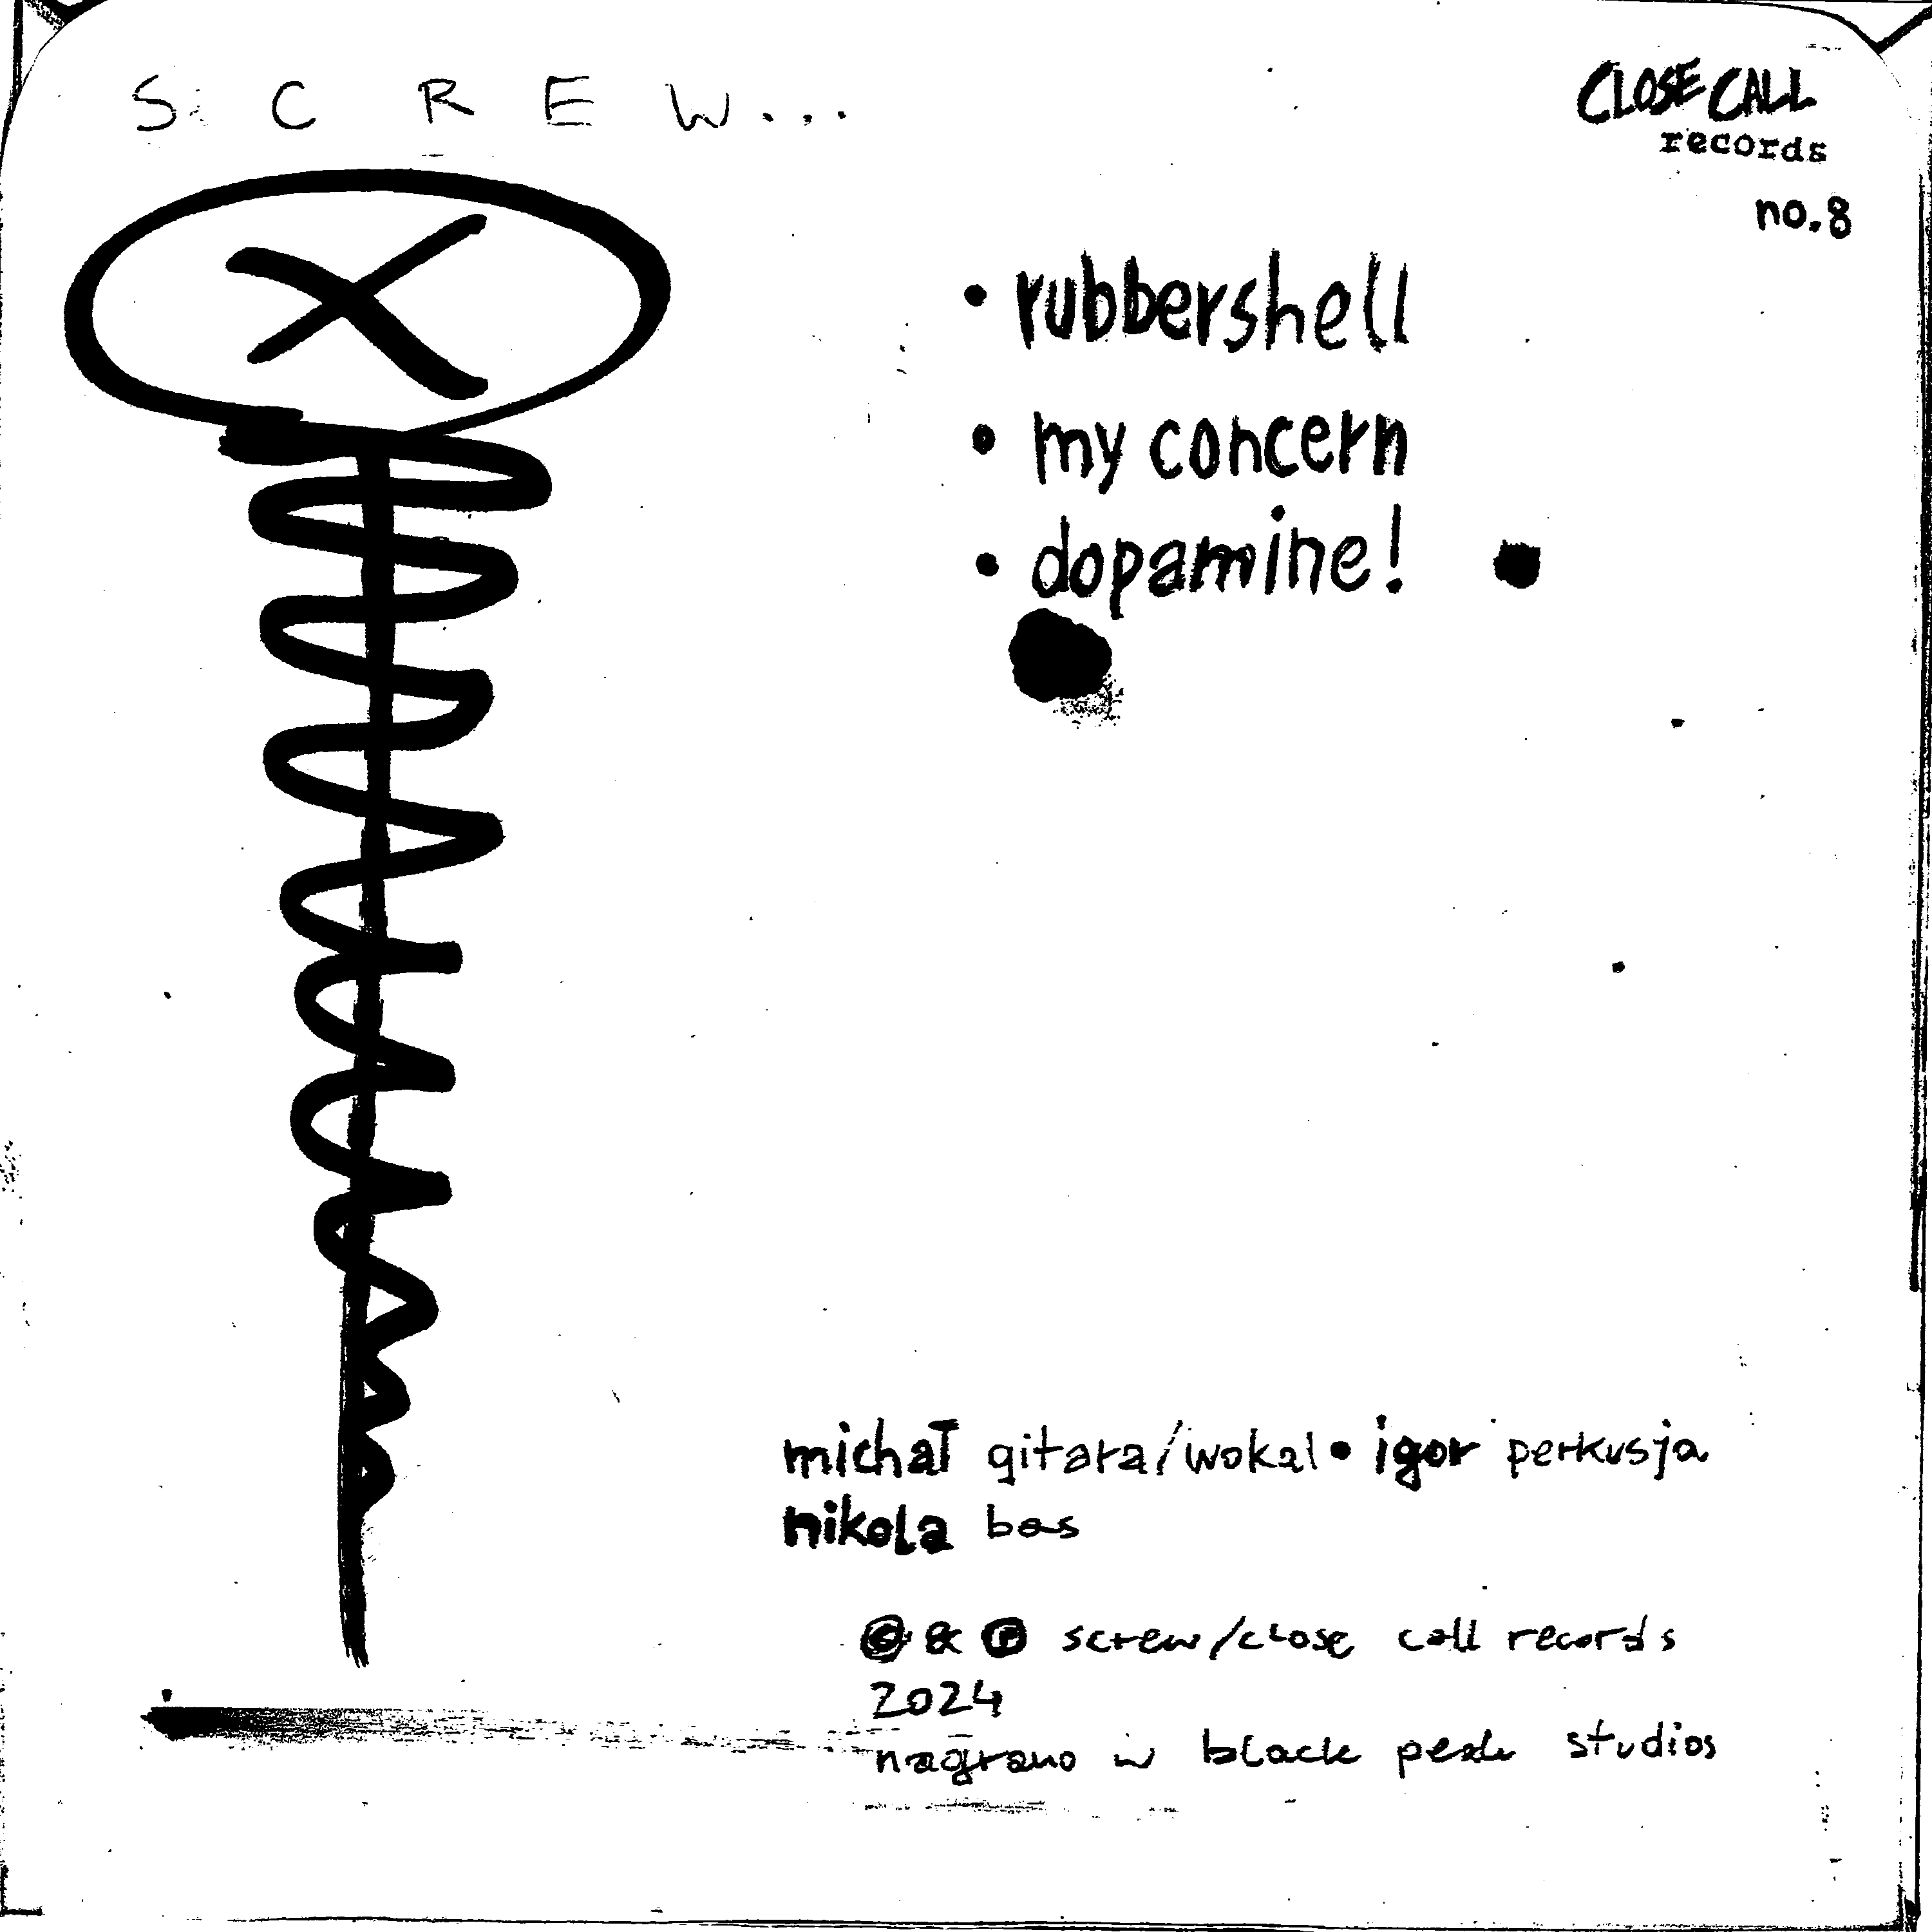 S C R E W...
CLOSE CALL
records
no.8
• rubbershell
• my concern
• dopamine!
michał gitara/wokal • igor perkusja
nikola bas
© & ℗ screw/close call records
2024
nagrano w black peak studios